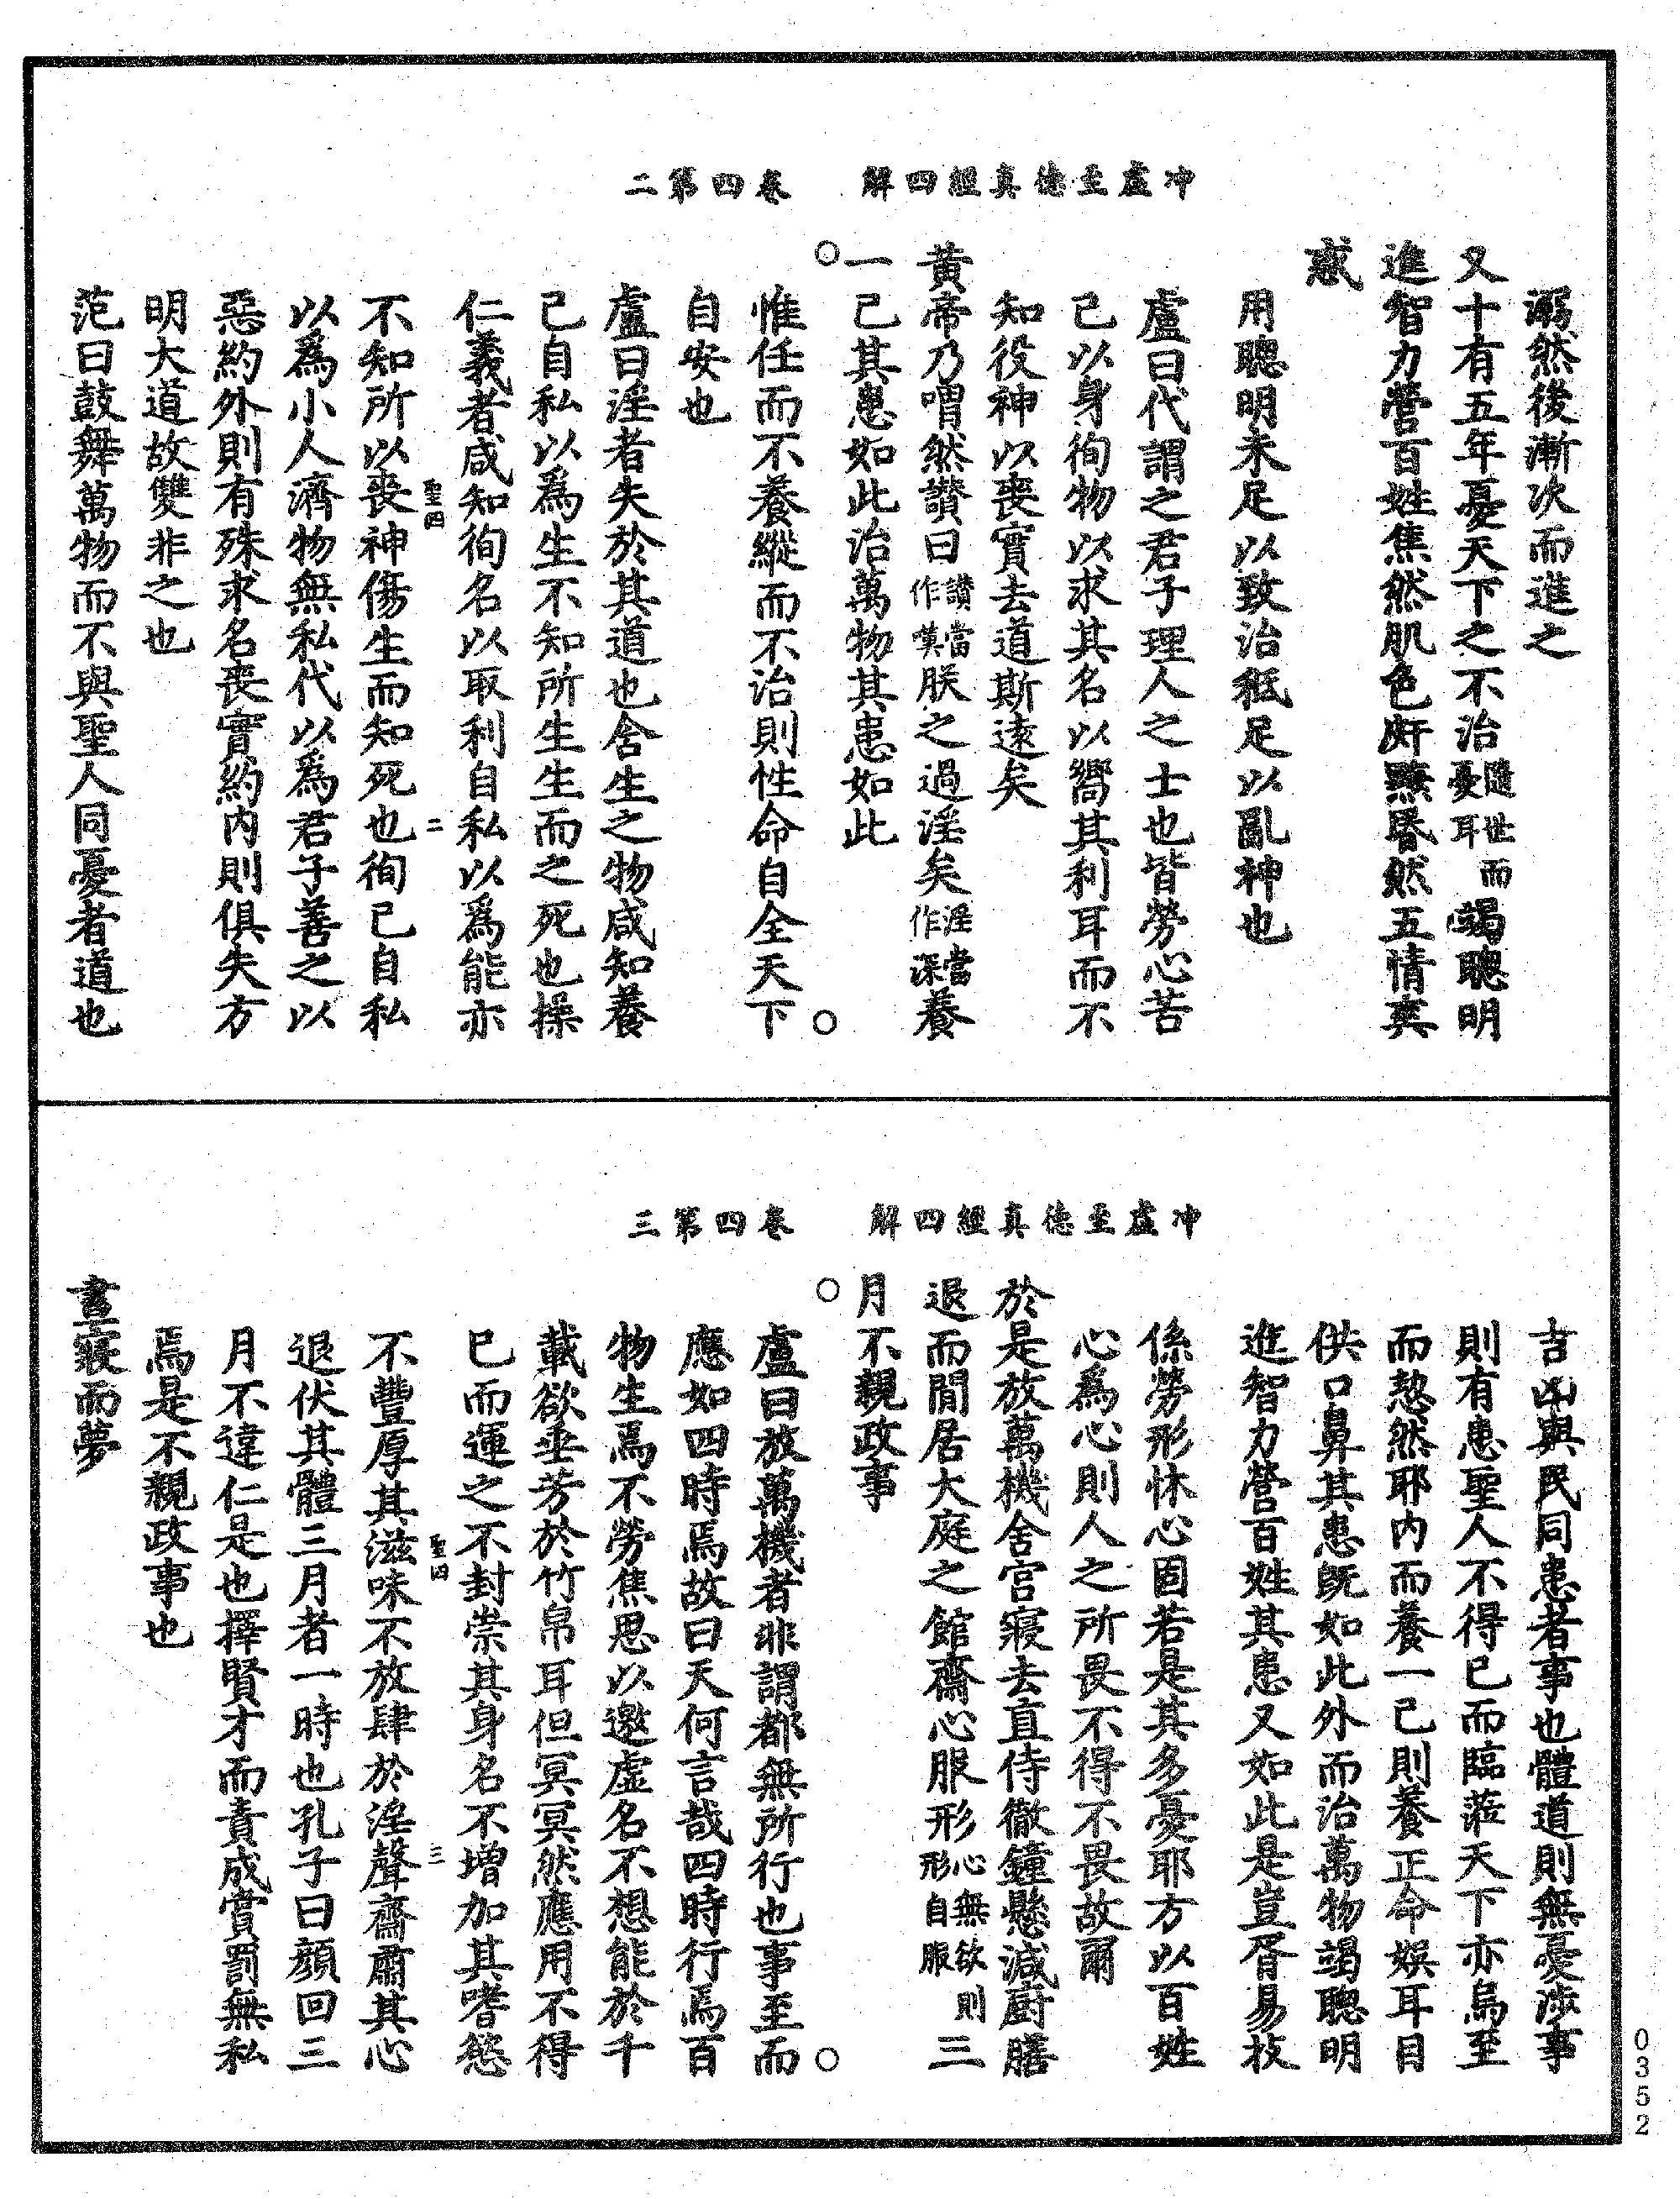 冲虛至德真經四解　卷四第二
溺然後漸次而進之
又十有五年憂天下之不治隨世而憂耳竭聰明
進智力營百姓焦然肌色皯黣昬然五情爽
惑
用聰明未足以致治秪足以亂神也
盧曰代謂之君子理人之士也皆勞心苦
己以身徇物以求其名以嚮其利耳而不
知役神以喪實去道斯遠矣
黃帝乃喟然讚曰讚當作嘆朕之過淫矣淫當作深養
一己其患如此治萬物其患如此
惟任而不養縱而不治則性命自全天下
自安也
盧曰淫者失於其道也舍生之物咸知養
己自私以為生不知所生生而之死也操
仁義者咸知徇名以取利自私以為能亦
聖四　二
不知所以喪神傷生而知死也徇己自私
以為小人濟物無私代以為君子善之以
惡約外則有殊求名喪實約内則俱失方
明大道故雙非之也
范曰鼓舞萬物而不與聖人同憂者道也
冲虛至德真經四解　卷四第三
吉凶與民同患者事也體道則無憂涉事
則有患聖人不得已而臨蒞天下亦烏至
而愸然耶内而養一己則養正命娛耳目
供口鼻其患旣如此外而治萬物竭聰明
進智力營百姓其患又如此是豈胥易技
係勞形怵心固若是其多憂耶方以百姓
心為心則人之所畏不得不畏故爾
於是放萬機舍宮寢去直侍徹鐘懸減厨膳
退而閒居大庭之館齋心服形心無欲則形自服三
月不親政事
盧曰放萬機者非謂都無所行也事至而
應如四時焉故曰天何言哉四時行焉百
物生焉不勞焦思以邀虛名不想能於千
載欲垂芳於竹帛耳但冥冥然應用不得
已而運之不封崇其身名不増加其嗜慾
聖四　三
不豐厚其滋味不放肆於淫聲齋肅其心
退伏其體三月者一時也孔子曰顔回三
月不違仁是也擇賢才而責成賞罰無私
焉是不親政事也
晝寢而夢
0352